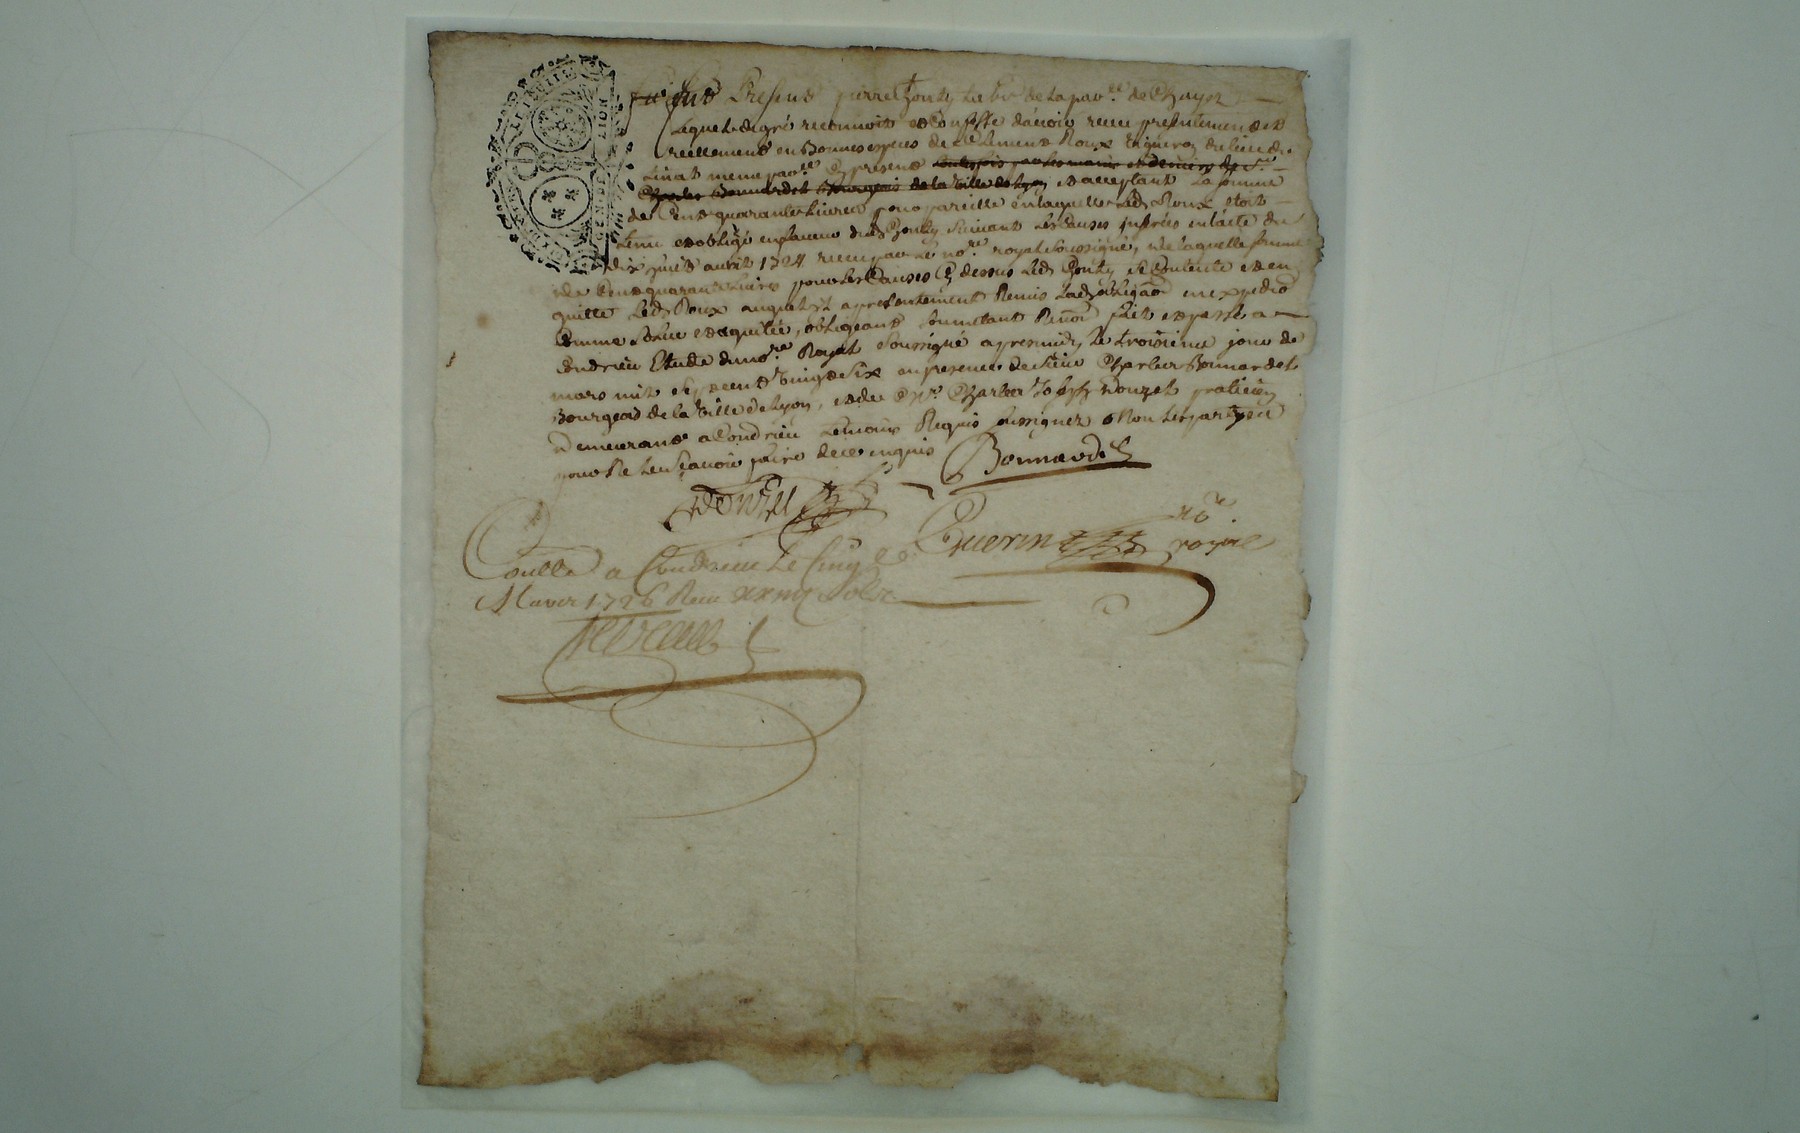 fut Present pierre Gonty Lab.r de la par.sse de Chuyer
Lequel de gré reconnoit et Confesse d'avoir receu presentement et
reellement en Bonnes especes de Clement Roux Vigneron du lieu de
meme par.sse Cy present toutesfois par les mains et deniers de S.r
Charles Bonnardel Bourgeois de la Ville de Lyon et acceptant La somme
de Cent quarante Livres pour pareille en laquelle Led. Roux étoit
tenu et obligé en faveur dud. Gonty Suivant Les Causes inserées en l'acte du
dix huit avril 1724 receu par Le no.re royal soussigné, de laquelle somme
de Cent quarante livres pour les Causes Cy dessus Led. Gonty se Contente et en
quitte Led. Roux auquel il a presentement Remis Lad. obliga.on en expedi.on
Comme Solue et aquitée, obligeant soumetant Renon.t fait et passé a
Condrieu Etude du no.re Royal Soussigné apres midy Le troisieme jour de
mars mil sept cent vingt Six en presence de Sieur Charles Bonnardel
Bourgeois de la Ville de Lyon, et de M.r Charles Joseph Donzel praticien
Demeurant a Condrieu temoins Requis soussignez Non Les parties
pour Ne Le sçavoir faire de ce enquis
Bonnardel
Donzel
Guerin no.re
royal
Conllé a Condrieu Le Cinq
Mars 1726 Receu Sols